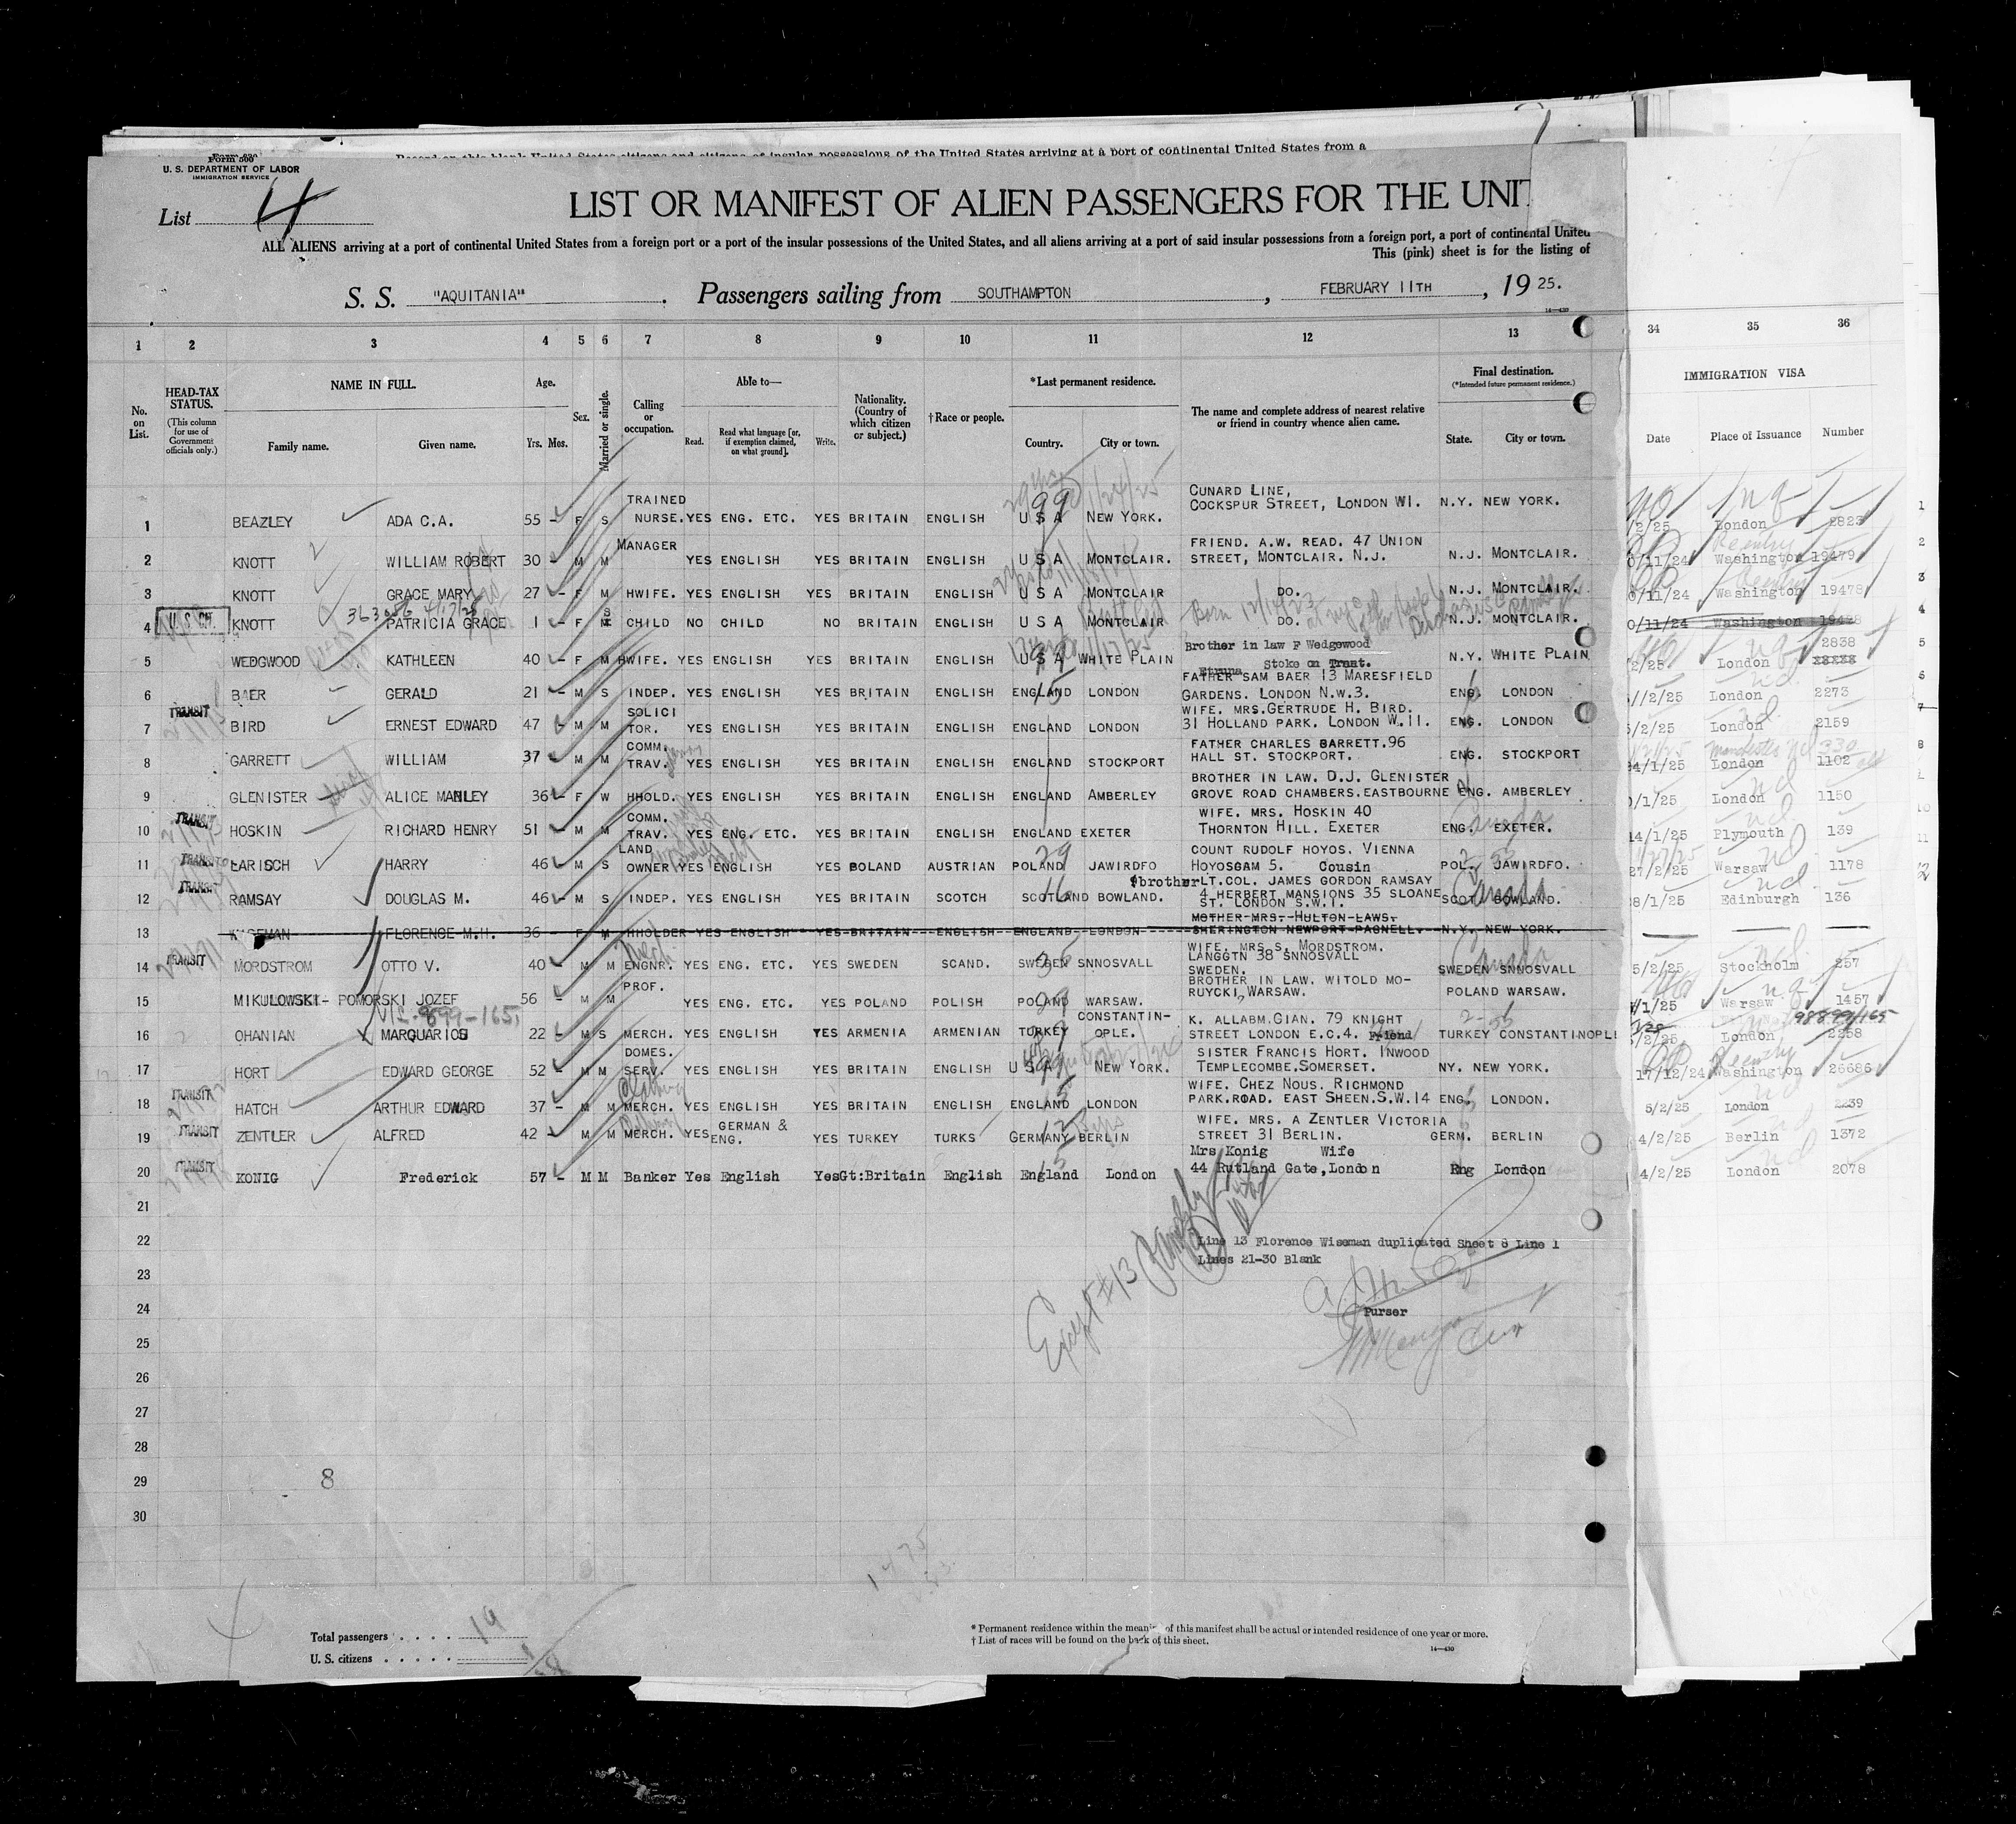 Form 500
U. S. DEPARTMENT OF LABOR
IMMIGRATION SERVICE
List 4
LIST OR MANIFEST OF ALIEN PASSENGERS FOR THE UNIT
ALL ALIENS arriving at a port of continental United States from a foreign port or a port of the insular possessions of the United States, and all aliens arriving at a port of said insular possessions from a foreign port, a port of continental United
This (pink) sheet is for the listing of
S. S. "AQUITANIA" . Passengers sailing from SOUTHAMPTON , FEBRUARY 11TH , 19 25.
1 2 3 4 5 6 7 8 9 10 11 12 13 34 35 36
No. on List.
HEAD-TAX STATUS. (This column for use of Government officials only.)
NAME IN FULL. Family name. Given name.
Age. Yrs. Mos.
Sex.
Married or single.
Calling or occupation.
Able to— Read. Read what language [or, if exemption claimed, on what ground]. Write.
Nationality. (Country of which citizen or subject.)
† Race or people.
*Last permanent residence. Country. City or town.
The name and complete address of nearest relative or friend in country whence alien came.
Final destination. (*Intended future permanent residence.) State. City or town.
IMMIGRATION VISA Date Place of Issuance Number
1 BEAZLEY ADA C.A. 55 - F S TRAINED NURSE. YES ENG. ETC. YES BRITAIN ENGLISH U S A NEW YORK. CUNARD LINE, COCKSPUR STREET, LONDON W1. N.Y. NEW YORK. /2/25 London 2823
2 KNOTT WILLIAM ROBERT 30 - M M MANAGER YES ENGLISH YES BRITAIN ENGLISH U S A MONTCLAIR. FRIEND. A.W. READ. 47 UNION STREET, MONTCLAIR. N.J. N.J. MONTCLAIR. 0/11/24 Washington 19479
3 KNOTT GRACE MARY 27 - F M HWIFE. YES ENGLISH YES BRITAIN ENGLISH U S A MONTCLAIR DO. N.J. MONTCLAIR. 0/11/24 Washington 19478
U.S. CH. 363656 4/17/25
4 KNOTT PATRICIA GRACE 1 - F S CHILD NO CHILD NO BRITAIN ENGLISH U S A MONTCLAIR Born 12/14/23 DO. N.J. MONTCLAIR. 0/11/24 Washington 19478
5 WEDGWOOD KATHLEEN 40 - F M HWIFE. YES ENGLISH YES BRITAIN ENGLISH U S A WHITE PLAIN Brother in law F Wedgewood Etruna Stoke on Trent. N.Y. WHITE PLAIN /2/25 London 2838
6 BAER GERALD 21 - M S INDEP. YES ENGLISH YES BRITAIN ENGLISH ENGLAND LONDON FATHER SAM BAER 13 MARESFIELD GARDENS. LONDON N.W.3. ENG. LONDON //2/25 London 2273
7 TRANSIT BIRD ERNEST EDWARD 47 - M M SOLICI TOR. YES ENGLISH YES BRITAIN ENGLISH ENGLAND LONDON WIFE. MRS.GERTRUDE H. BIRD. 31 HOLLAND PARK. LONDON W.11. ENG. LONDON 5/2/25 London 2159
8 GARRETT WILLIAM 37 - M M COMM. TRAV. YES ENGLISH YES BRITAIN ENGLISH ENGLAND STOCKPORT FATHER CHARLES BARRETT.96 HALL ST. STOCKPORT. ENG. STOCKPORT 4/1/25 London 1102
9 GLENISTER ALICE MANLEY 36 - F W HHOLD. YES ENGLISH YES BRITAIN ENGLISH ENGLAND AMBERLEY BROTHER IN LAW. D.J. GLENISTER GROVE ROAD CHAMBERS.EASTBOURNE ENG. AMBERLEY 0/1/25 London 1150
10 TRANSIT HOSKIN RICHARD HENRY 51 - M M COMM. TRAV. YES ENG. ETC. YES BRITAIN ENGLISH ENGLAND EXETER WIFE. MRS. HOSKIN 40 THORNTON HILL. EXETER ENG. EXETER. Canada 14/1/25 Plymouth 139
11 TRANSIT LARISCH HARRY 46 - M S LAND OWNER YES ENGLISH YES POLAND AUSTRIAN POLAND JAWIRDFO COUNT RUDOLF HOYOS. VIENNA HOYOSGAM 5. Cousin POL. JAWIRDFO. 27/2/25 Warsaw 1178
12 TRANSIT RAMSAY DOUGLAS M. 46 - M S INDEP. YES ENGLISH YES BRITAIN SCOTCH SCOTLAND BOWLAND. brother LT.COL. JAMES GORDON RAMSAY 4 HERBERT MANSIONS 35 SLOANE ST. LONDON S.W.1. SCOT. BOWLAND. Canada 8/1/25 Edinburgh 136
13 WISEMAN FLORENCE M.H. 36 - F M HHOLDER YES ENGLISH YES BRITAIN ENGLISH ENGLAND LONDON MOTHER MRS. HULTON LAWS. SHERINGTON NEWPORT PAGNELL. N.Y. NEW YORK.
14 TRANSIT MORDSTROM OTTO V. 40 - M M ENGNR. YES ENG. ETC. YES SWEDEN SCAND. SWEDEN SNNOSVALL WIFE. MRS S. MORDSTROM. LANGGTN 38 SNNOSVALL SWEDEN. SWEDEN SNNOSVALL Canada 5/2/25 Stockholm 257
15 MIKULOWSKI- POMORSKI JOZEF 56 - M M PROF. YES ENG. ETC. YES POLAND POLISH POLAND WARSAW. BROTHER IN LAW. WITOLD MO- RUYCKI, WARSAW. POLAND WARSAW. /1/25 Warsaw 1457
16 OHANIAN MARQUARIOS 22 - M S MERCH. YES ENGLISH YES ARMENIA ARMENIAN TURKEY CONSTANTIN- OPLE. K. ALLABM.GIAN. 79 KNIGHT STREET LONDON E.C.4. Friend TURKEY CONSTANTINOPLE 98899/165 /2/25 London 2258
17 HORT EDWARD GEORGE 52 - M M DOMES. SERV. YES ENGLISH YES BRITAIN ENGLISH U S A NEW YORK. SISTER FRANCIS HORT. INWOOD TEMPLECOMBE.SOMERSET. NY. NEW YORK. 17/12/24 Washington 26686
18 TRANSIT HATCH ARTHUR EDWARD 37 - M M MERCH. YES ENGLISH YES BRITAIN ENGLISH ENGLAND LONDON WIFE. CHEZ NOUS. RICHMOND PARK.ROAD. EAST SHEEN.S.W.14 ENG. LONDON. 5/2/25 London 2239
19 TRANSIT ZENTLER ALFRED 42 - M M MERCH. YES GERMAN & ENG. YES TURKEY TURKS GERMANY BERLIN WIFE. MRS. A ZENTLER VICTORIA STREET 31 BERLIN. GERM. BERLIN 4/2/25 Berlin 1372
20 TRANSIT KONIG Frederick 57 - M M Banker Yes English Yes Gt:Britain English England London Mrs Konig Wife 44 Rutland Gate,London Eng London 4/2/25 London 2078
21
22 Line 13 Florence Wiseman duplicated Sheet 8 Line 1
Lines 21-30 Blank
23
24 Except #13
Purser
25
26
27
28
29 8
30
Total passengers . . . . 19
U. S. citizens . . . . . 1
* Permanent residence within the meaning of this manifest shall be actual or intended residence of one year or more.
† List of races will be found on the back of this sheet.
14—430